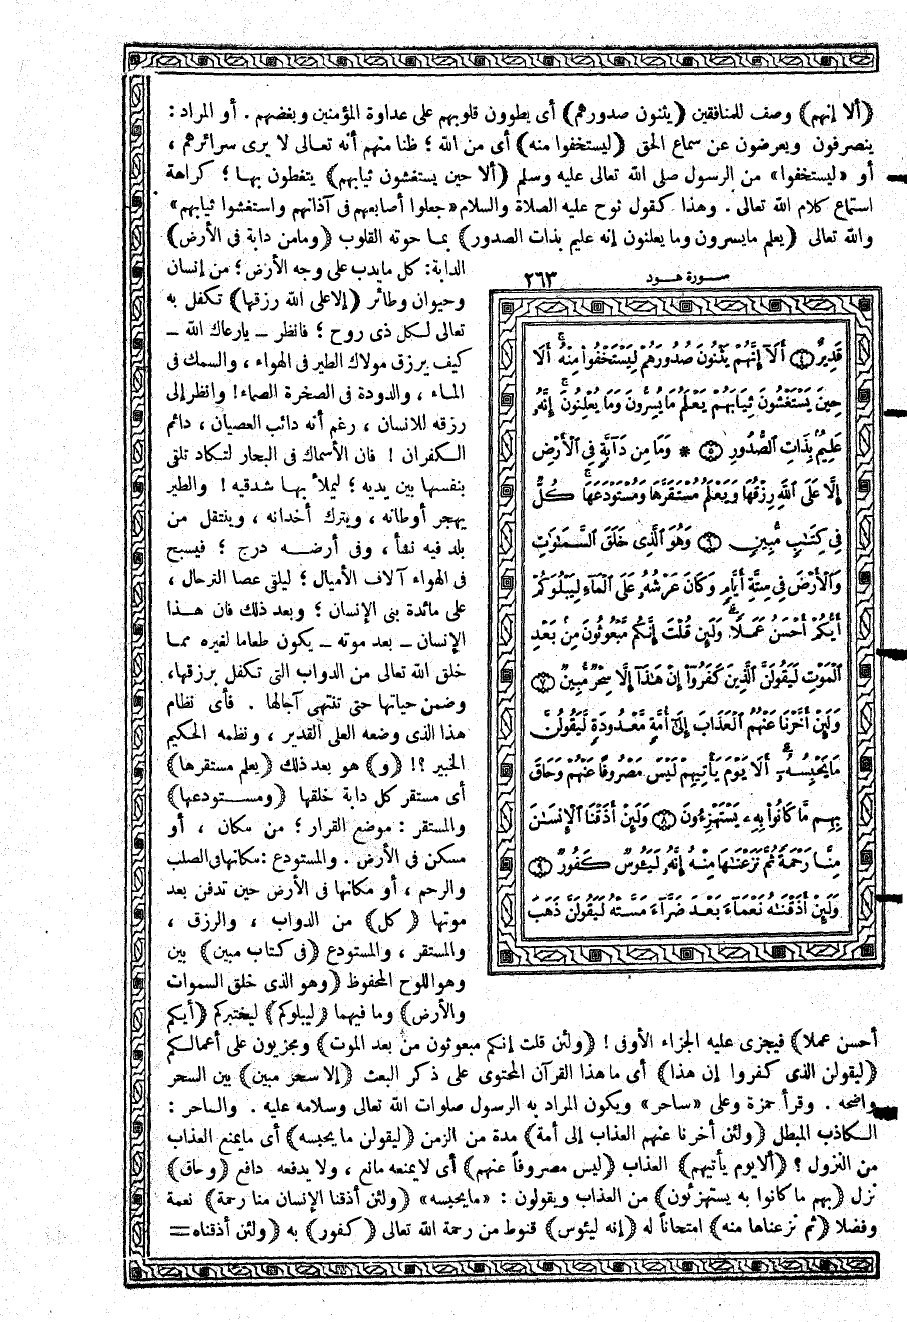 (ألا إنهم) وصف للمنافقين (يثنون صدورهم) أى يطوون قلوبهم على عداوة المؤمنين وبغضهم . أو المراد :
ينصرفون ويعرضون عن سماع الحق (ليستخفوا منه) أى من الله ؛ ظنا منهم أنه تعالى لا يرى سرائرهم ،
أو «ليستخفوا» من الرسول صلى الله تعالى عليه وسلم (ألا حين يستغشون ثيابهم) يتغطون بها ؛ كراهة
استماع كلام الله تعالى . وهذا كقول نوح عليه الصلاة والسلام «جعلوا أصابعهم فى آذانهم واستغشوا ثيابهم»
والله تعالى (يعلم مايسرون وما يعلنون إنه عليم بذات الصدور) بما حوته القلوب (ومامن دابة فى الأرض)
الدابة : كل مايدب على وجه الأرض ؛ من إنسان
وحيوان وطائر (إلاعلى الله رزقها) تكفل به
تعالى لكل ذى روح ؛ فانظر ــ يارعاك الله ــ
كيف يرزق مولاك الطير فى الهواء ، والسمك فى
الماء ، والدودة فى الصخرة الصماء! وانظر إلى
رزقه للانسان ، رغم أنه دائب العصيان ، دائم
الكفران ! فان الأسماك فى البحار لتكاد تلقى
بنفسها بين يديه ؛ ليملأ بها شدقيه ! والطير
يهجر أوطانه ، ويترك أخدانه ، وينتقل من
بلد فيه نشأ ، وفى أرضه درج ؛ فيسبح
فى الهواء آلاف الأميال ؛ ليلقى عصا الترحال ،
على مائدة بنى الإنسان ؛ وبعد ذلك فان هذا
الإنسان ــ بعد موته ــ يكون طعاما لغيره مما
خلق الله تعالى من الدواب التى تكفل برزقها،
وضمن حياتها حتى تنتهى آجالها . فأى نظام
هذا الذى وضعه العلى القدير ، ونظمه الحكيم
الخبير ؟! (و) هو بعد ذلك (يعلم مستقرها)
أى مستقر كل دابة خلقها (ومستودعها)
والمستقر : موضع القرار ؛ من مكان ، أو
مسكن فى الأرض . والمستودع : مكانها فى الصلب
والرحم ، أو مكانها فى الأرض حين تدفن بعد
موتها (كل) من الدواب ، والرزق ،
والمستقر ، والمستودع (فى كتاب مبين) بين
وهو اللوح المحفوظ (وهو الذى خلق السموات
والأرض) وما فيهما (ليبلوكم) ليختبركم (أيكم
سورة هود ٢٦٣
قَدِيرٌ ٤ أَلَآ إِنَّهُمْ يَثْنُونَ صُدُورَهُمْ لِيَسْتَخْفُوا۟ مِنْهُ ۚ أَلَا
حِينَ يَسْتَغْشُونَ ثِيَابَهُمْ يَعْلَمُ مَا يُسِرُّونَ وَمَا يُعْلِنُونَ ۚ إِنَّهُۥ
عَلِيمٌۢ بِذَاتِ ٱلصُّدُورِ ٥ * وَمَا مِن دَآبَّةٍ فِى ٱلْأَرْضِ
إِلَّا عَلَى ٱللَّهِ رِزْقُهَا وَيَعْلَمُ مُسْتَقَرَّهَا وَمُسْتَوْدَعَهَا ۚ كُلٌّ
فِى كِتَٰبٍ مُّبِينٍ ٦ وَهُوَ ٱلَّذِى خَلَقَ ٱلسَّمَٰوَٰتِ
وَٱلْأَرْضَ فِى سِتَّةِ أَيَّامٍ وَكَانَ عَرْشُهُۥ عَلَى ٱلْمَآءِ لِيَبْلُوَكُمْ
أَيُّكُمْ أَحْسَنُ عَمَلًا ۗ وَلَئِن قُلْتَ إِنَّكُم مَّبْعُوثُونَ مِنۢ بَعْدِ
ٱلْمَوْتِ لَيَقُولَنَّ ٱلَّذِينَ كَفَرُوٓا۟ إِنْ هَٰذَآ إِلَّا سِحْرٌ مُّبِينٌ ٧
وَلَئِنْ أَخَّرْنَا عَنْهُمُ ٱلْعَذَابَ إِلَىٰٓ أُمَّةٍ مَّعْدُودَةٍ لَّيَقُولُنَّ
مَا يَحْبِسُهُۥٓ ۗ أَلَا يَوْمَ يَأْتِيهِمْ لَيْسَ مَصْرُوفًا عَنْهُمْ وَحَاقَ
بِهِم مَّا كَانُوا۟ بِهِۦ يَسْتَهْزِءُونَ ٨ وَلَئِنْ أَذَقْنَا ٱلْإِنسَٰنَ
مِنَّا رَحْمَةً ثُمَّ نَزَعْنَٰهَا مِنْهُ إِنَّهُۥ لَيَـُٔوسٌ كَفُورٌ ٩
وَلَئِنْ أَذَقْنَٰهُ نَعْمَآءَ بَعْدَ ضَرَّآءَ مَسَّتْهُ لَيَقُولَنَّ ذَهَبَ
أحسن عملا) فيجزى عليه الجزاء الأوفى ! (ولئن قلت إنكم مبعوثون من بعد الموت) ومجزيون على أعمالكم
(ليقولن الذى كفروا إن هذا) أى ما هذا القرآن المحتوى على ذكر البعث (إلا سحر مبين) بين السحر
واضحه . وقرأ حمزة وعلى «ساحر» ويكون المراد به الرسول صلوات الله تعالى وسلامه عليه . والساحر :
الكاذب المبطل (ولئن أخرنا عنهم العذاب إلى أمة) مدة من الزمن (ليقولن ما يحبسه) أى مايمنع العذاب
من النزول ؟ (ألايوم يأتيهم) العذاب (ليس مصروفاً عنهم) أى لايمنعه مانع ، ولا يدفعه دافع (وحاق)
نزل (بهم ما كانوا به يستهزئون) من العذاب ويقولون : «مايحبسه» (ولئن أذقنا الإنسان منا رحمة) نعمة
وفضلا (ثم نزعناها منه) امتحاناً له (إنه ليئوس) قنوط من رحمة الله تعالى (كفور) به (ولئن أذقناه =